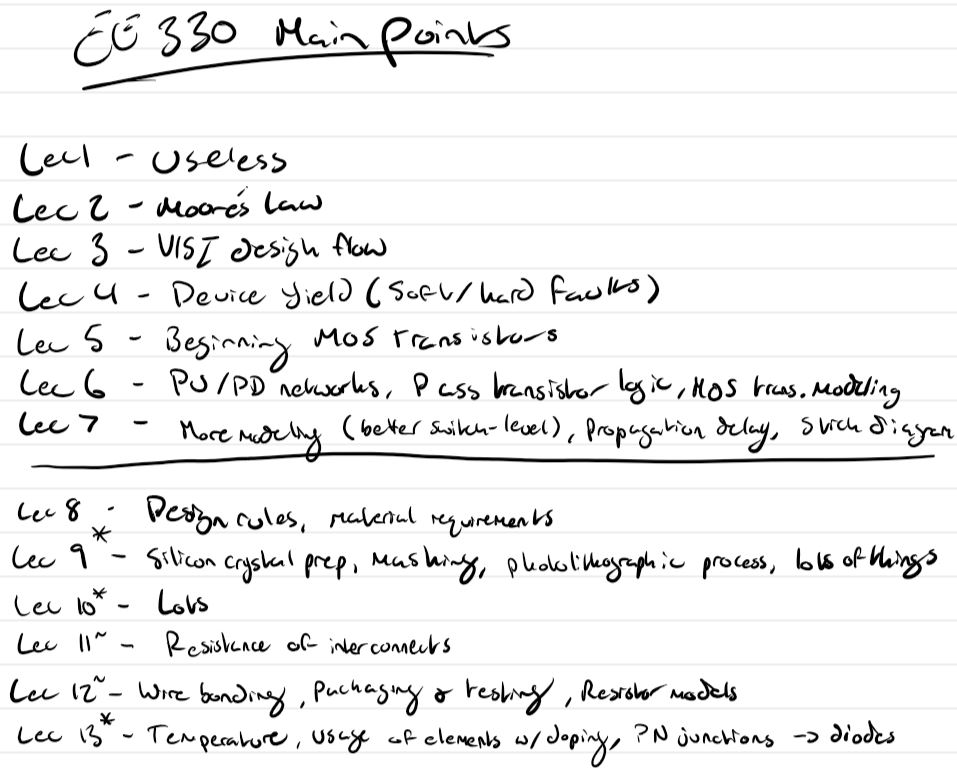 EE 330 Main Points
Lec 1 - Useless
Lec 2 - Moore's Law
Lec 3 - VlSI design flow
Lec 4 - Device Yield (Soft/hard faults)
Lec 5 - Beginning MOS transistors
Lec 6 - PU/PD networks, Pass transistor logic, MOS trans. modeling
Lec 7 - More modeling (better switch-level), Propagation delay, Stick diagram
Lec 8 - Design rules, material requirements
Lec 9* - Silicon crystal prep, Masking, photolithographic process, lots of things
Lec 10* - Lots
Lec 11~ - Resistance of interconnects
Lec 12~ - Wire bonding, Packaging & testing, Resistor models
Lec 13* - Temperature, usage of elements w/ doping, PN junctions -> diodes